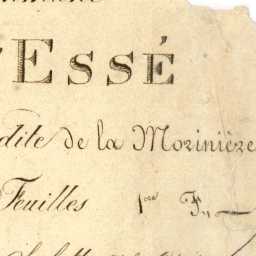 'ESSÉ
dite de la Morinière
Feuilles 1ere F.